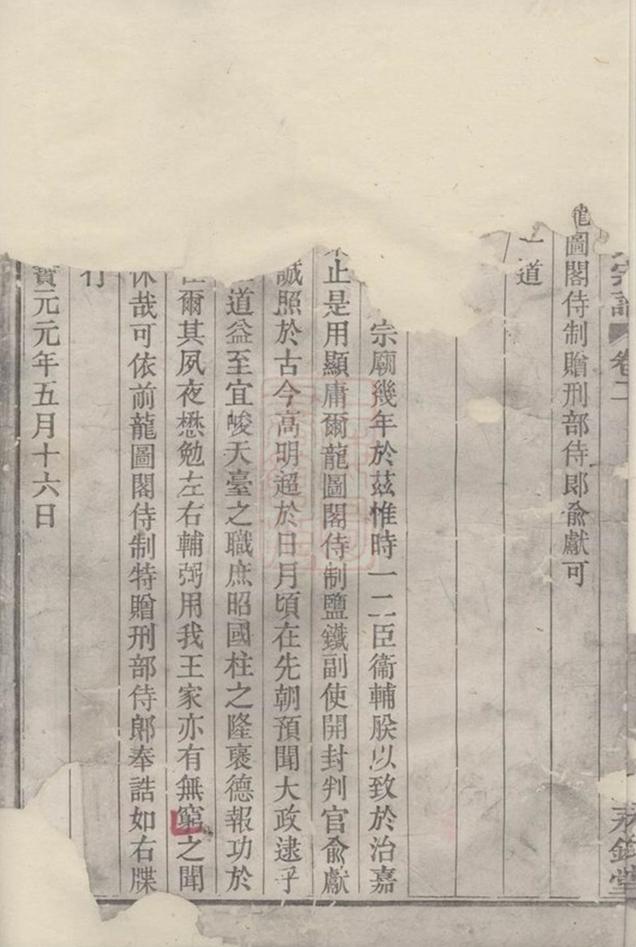 宗譜 卷二
龍圖閣侍制贈刑部侍郎俞獻可
一道
宗廟幾年於茲惟時一二臣衞輔朕以致於治嘉
止是用顯庸爾龍圖閣侍制鹽鐵副使開封判官俞獻
誠照於古今高明超於日月頃在先朝預聞大政逮乎
道益至宜峻天臺之職庶昭國柱之隆褒德報功於
爾其夙夜懋勉左右輔弼用我王家亦有無窮之聞
休哉可依前龍圖閣侍制特贈刑部侍郎奉誥如右牒
行
寶元元年五月十六日